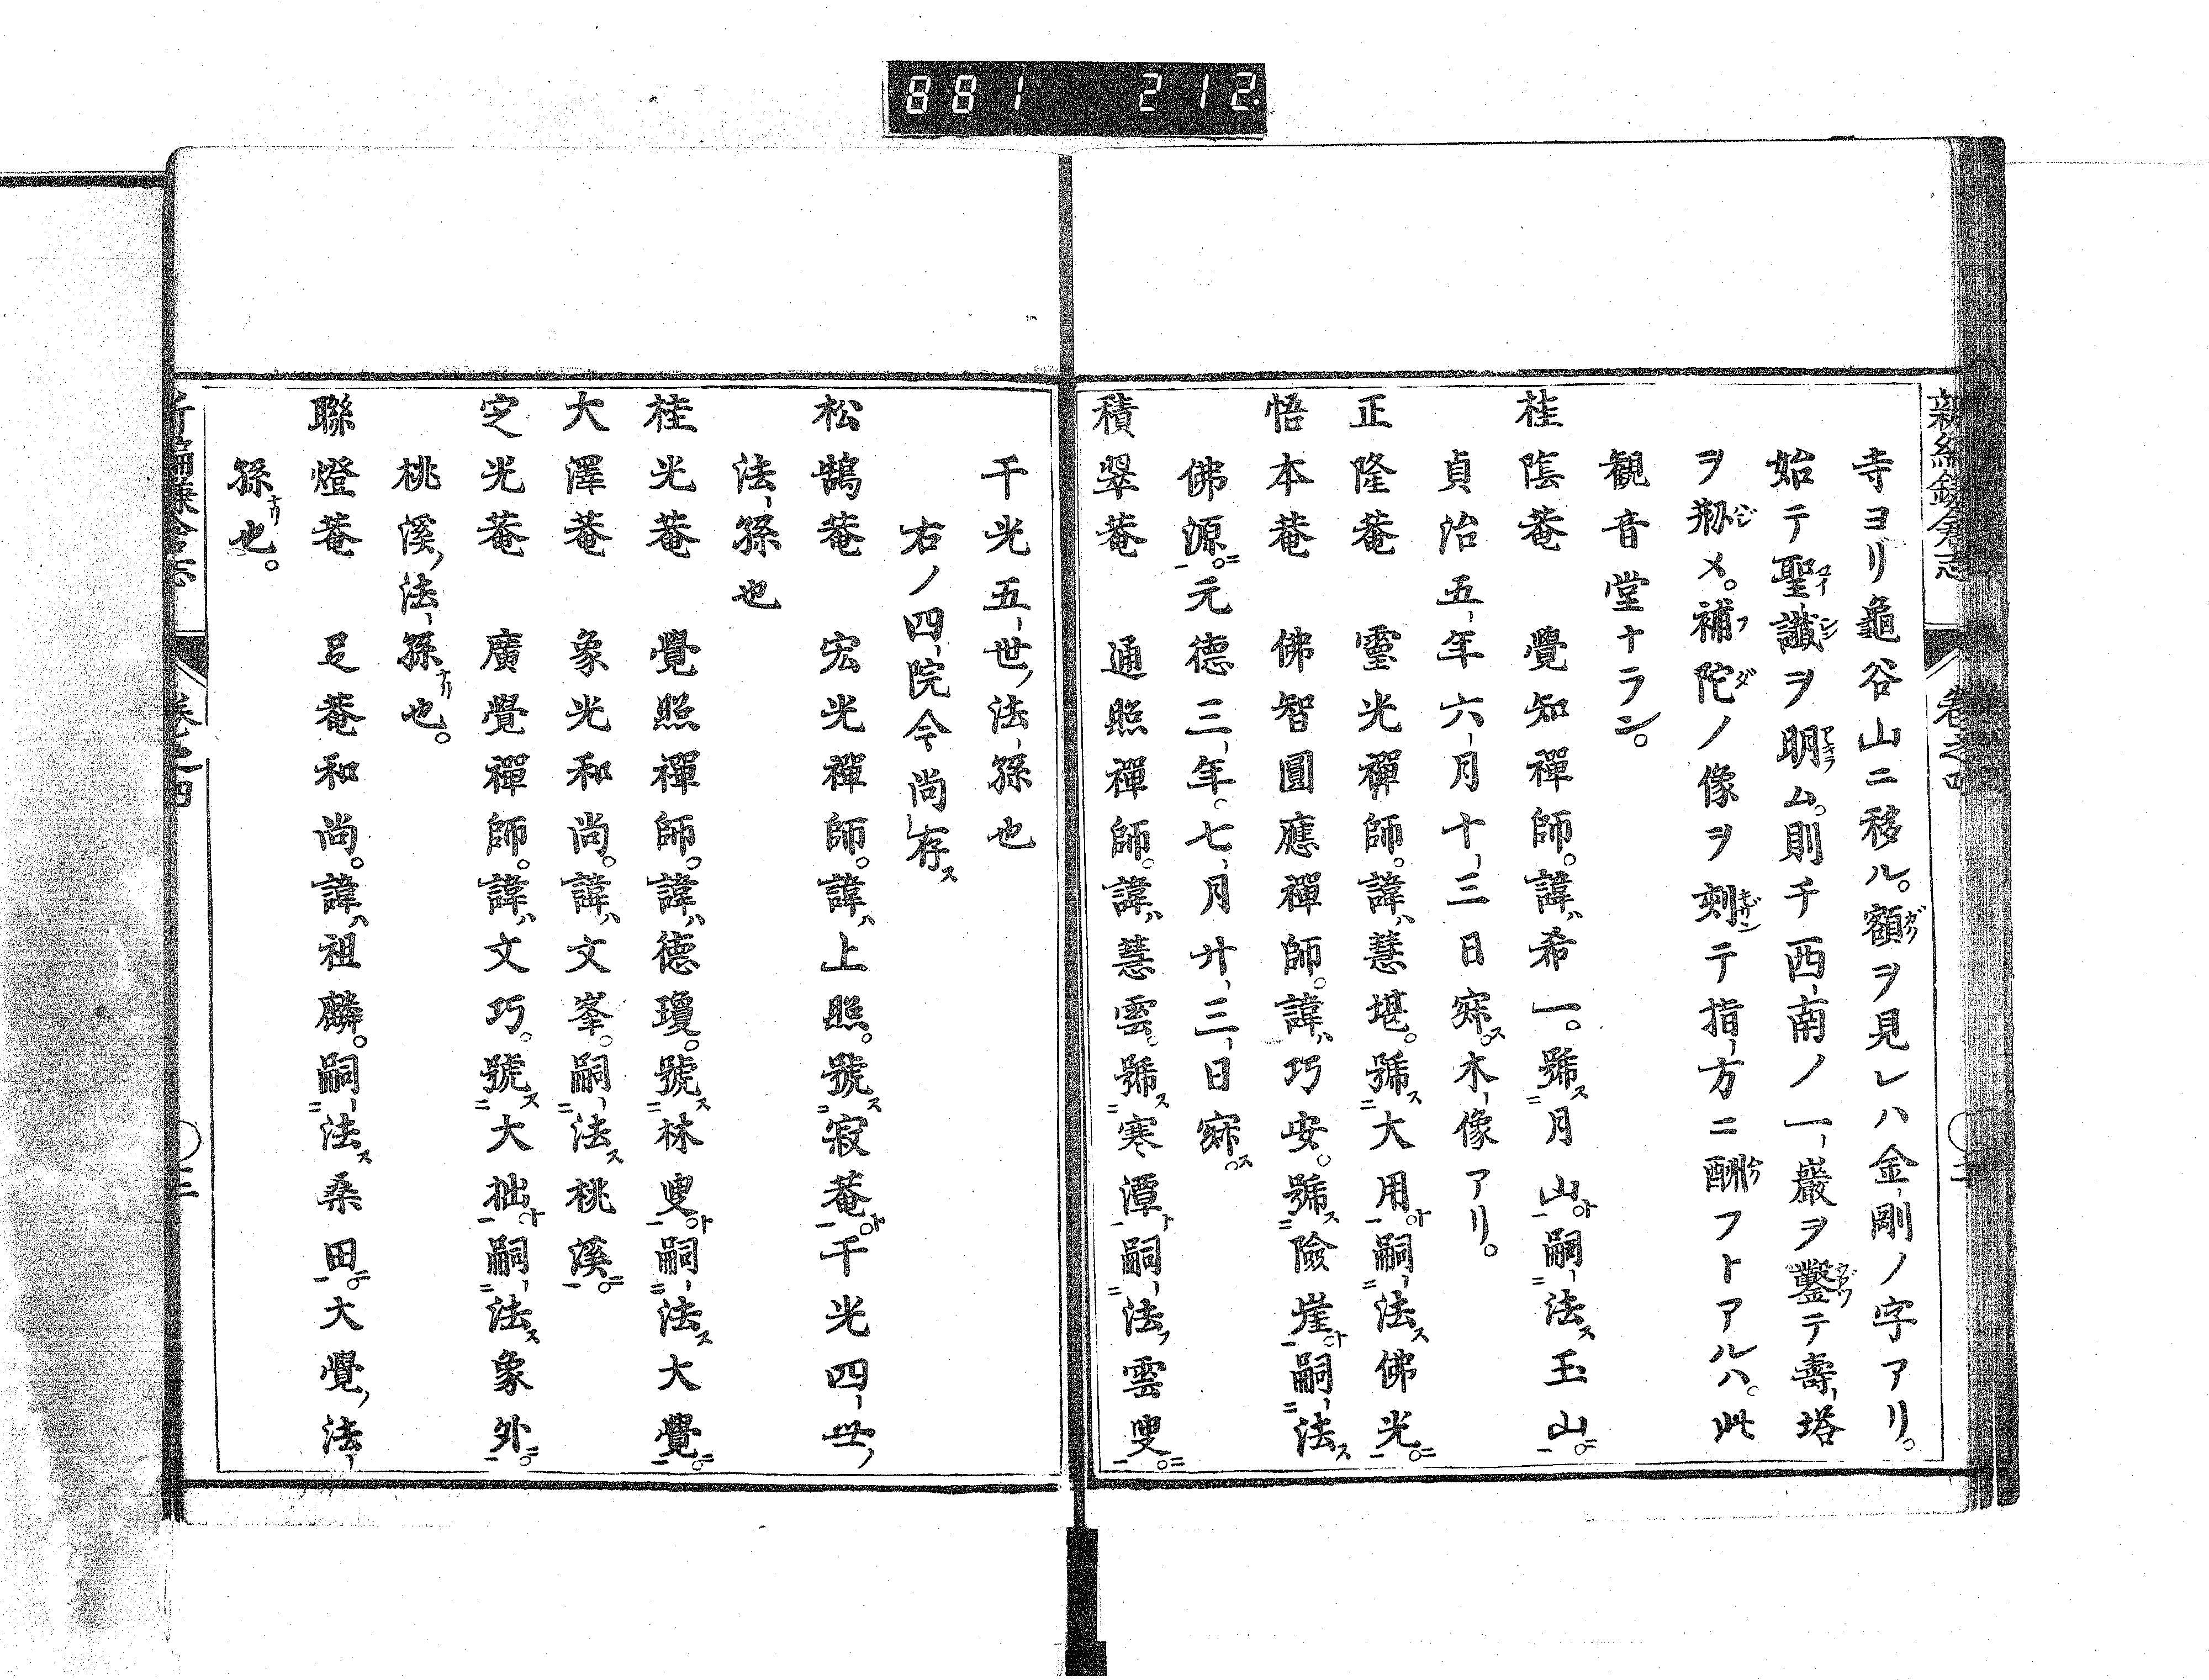 881 212
新編鎌倉志 卷之四 二
寺ヨリ龜谷山ニ移ル。額ヲ見レハ金剛ノ字アリ。
始テ聖讖ヲ明ム。則チ西南ノ一巖ヲ鑿テ壽塔
ヲ剏メ。補陀ノ像ヲ刻テ指方ニ酬フトアルハ。此
観音堂ナラン。
桂陰菴 覺知禪師。諱ハ希一。號ス月山ト。嗣法ス玉山ニ。
貞治五年六月十三日寂ス。木像アリ。
正隆菴 靈光禪師。諱ハ慧堪。號ス大用ト。嗣法ス佛光ニ。
悟本菴 佛智圓應禪師。諱ハ巧安。號ス險崖ト。嗣法ス
佛源ニ。元德三年。七月廿三日寂ス。
積翠菴 通照禪師。諱ハ慧雲。號ス寒潭ト。嗣法ス雲叟ニ。
千光五世ノ法孫也
右ノ四院今尚存ス
松鵠菴 宏光禪師。諱ハ上照。號ス寂菴ト。千光四世ノ
法孫也
桂光菴 覺照禪師。諱ハ德瓊。號ス林叟ト。嗣法ス大覺ニ。
大澤菴 象光和尚。諱ハ文峯。嗣法ス桃溪ニ。
定光菴 廣覺禪師。諱ハ文巧。號ス大拙ト。嗣法ス象外ニ。
桃溪ノ法孫ナリ也。
聯燈菴 足菴和尚。諱ハ祖麟。嗣法ス桑田ニ。大覺ノ法
孫ナリ也。
新編鎌倉志 卷之四 三